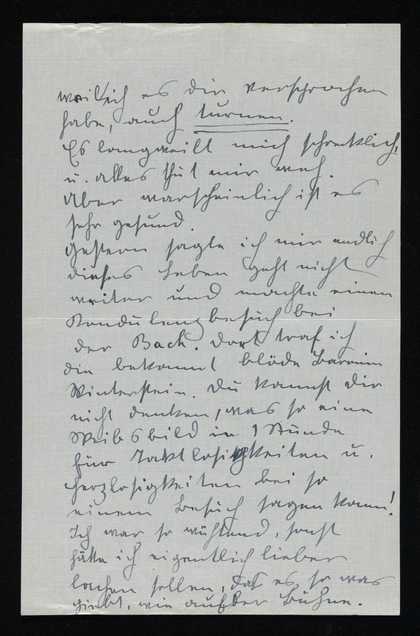 weil ich es dir versprochen
habe, auch turnen.
Es langweilt mich schrecklich,
u. alles thut mir weh.
Aber warscheinlich ist es
sehr gesund.
Gestern sagte ich mir endlich
dieses Leben geht nicht
weiter und machte einen
Kondulenzbesuch bei
der Bach. Dort traf ich
die bekannt blöde Baronin
Winterstein. Du kannst dir
nicht denken, was so eine
Weibsbild in 1 Stunde
für Taktlosigkeiten u.
Herzlosigkeiten bei so
einem Besuch sagen kann!
Ich war so wüthend, sonst
hätte ich eigentlich lieber
lachen sollen, daß es so was
giebt, wie auf der Bühne.